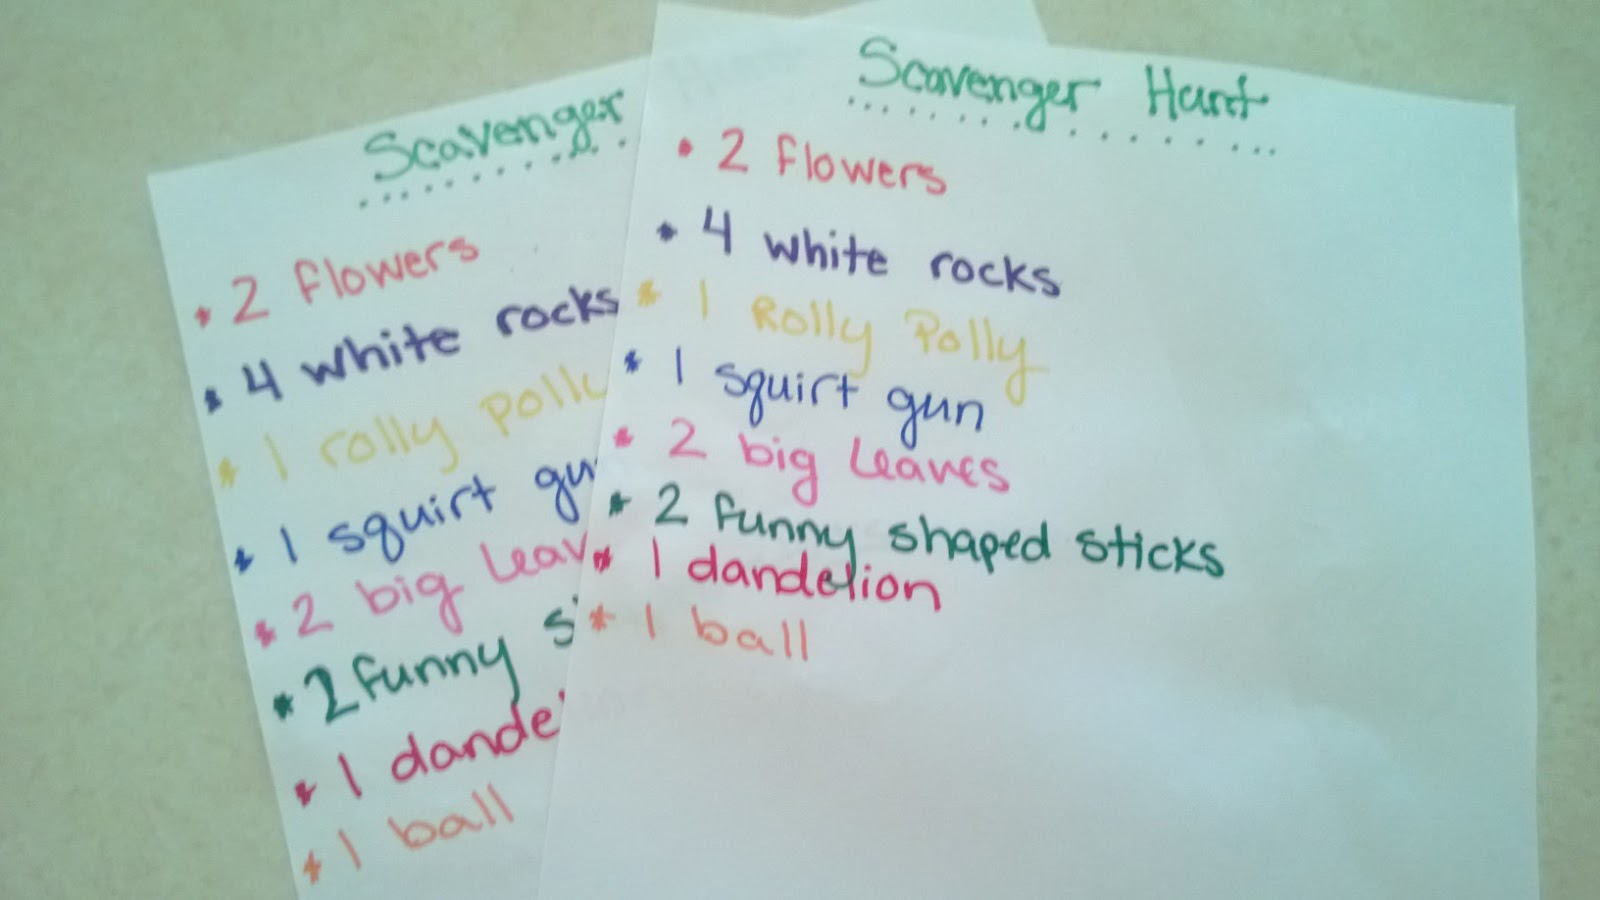 Scavenger
• 2 flowers
* 4 white rocks
* 1 rolly polly
* 1 squirt gu
* 2 big Leav
* 2 funny s
* 1 dande
* 1 ball
Scavenger Hunt
• 2 flowers
* 4 white rocks
* 1 Rolly Polly
* 1 squirt gun
* 2 big Leaves
* 2 funny shaped sticks
* 1 dandelion
* 1 ball